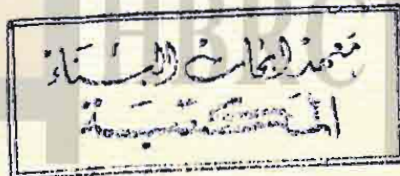 HBRC
معهد ابحاث البناء
المكتبة